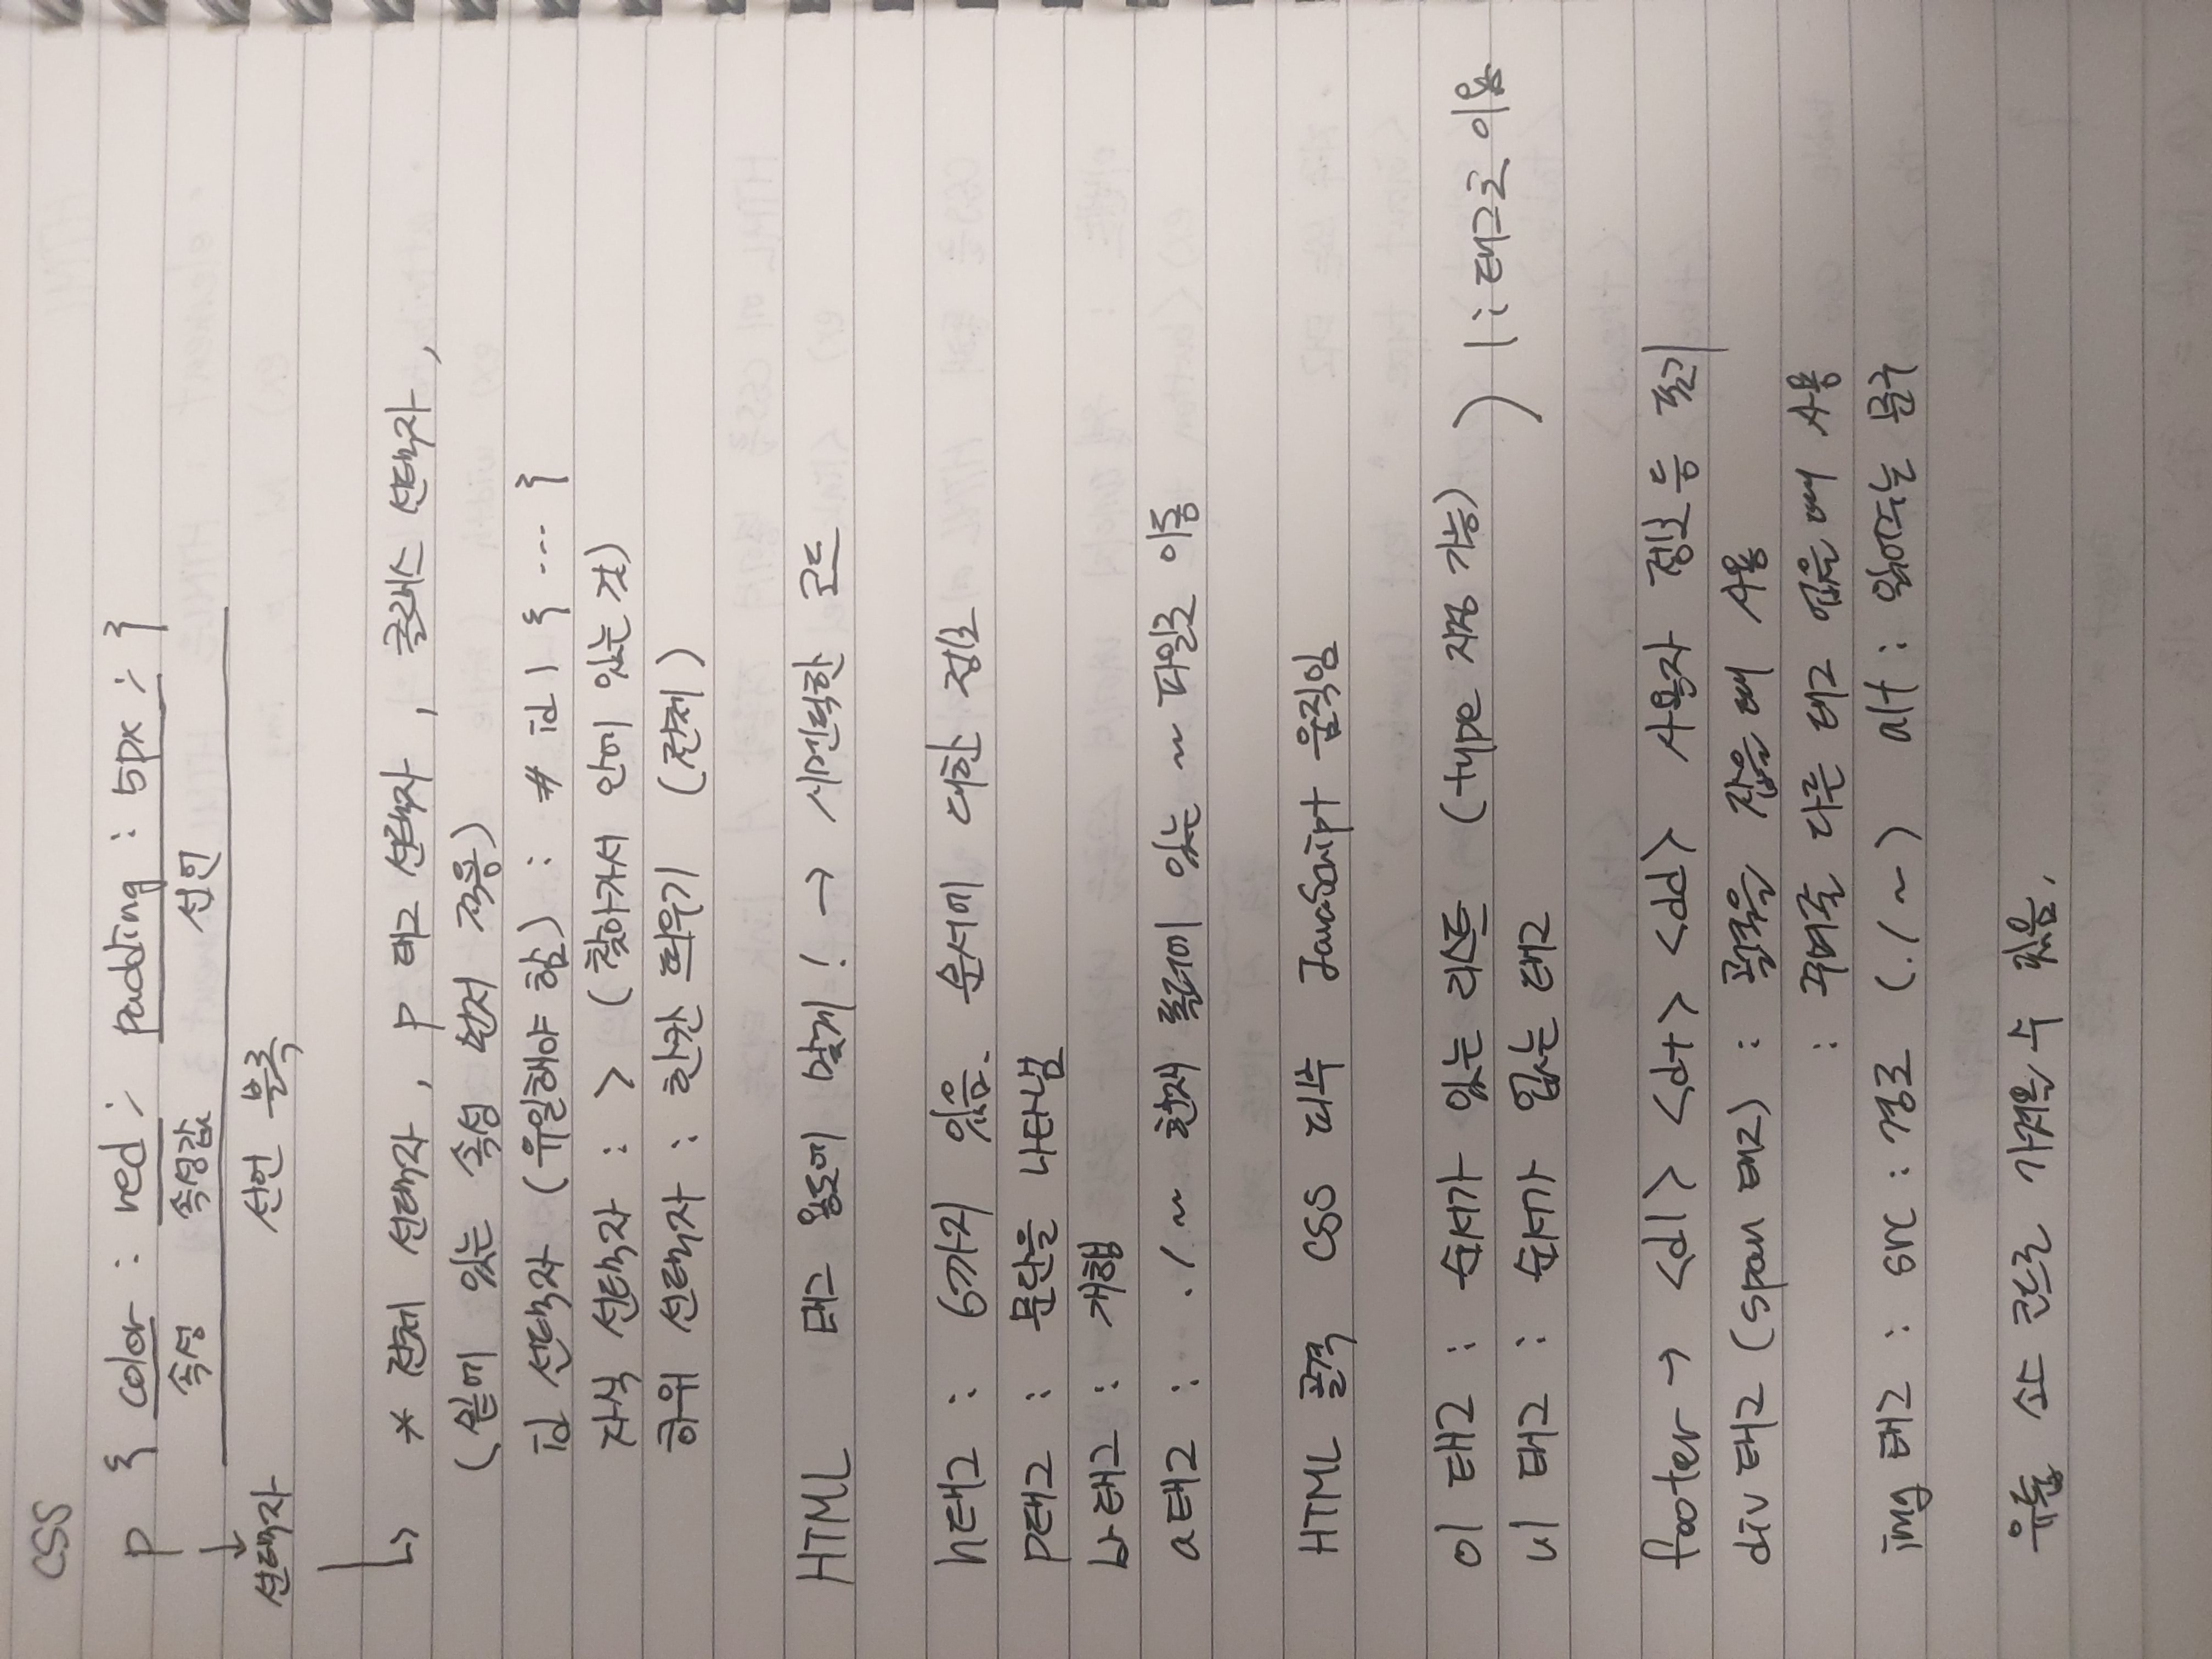 CSS
p { color : red ; padding : 5px ; }
속성 속성값 선언
선택자 선언 블록
* 전체 선택자 , p 태그 선택자 , 클래스 선택자 ,
(밑에 있는 속성 먼저 적용)
id 선택자 (유일해야 함) : # id 1 { ... }
자식 선택자 : > (찾아가서 안에 있는 것)
하위 선택자 : 한칸 띄우기 (전체)
HTML 태그 용도에 맞게! → 시멘틱한 코드
h태그 : 6까지 있음. 문서에 대한 정보
p태그 : 문단을 나타냄
br태그 : 개행
a태그 : ./~ 현재 폴더에 있는 ~ 파일로 이동
HTML 골격 CSS 피부 JavaScript 움직임
ol 태그 : 순서가 있는 리스트 (type 지정 가능)
ul 태그 : 순서가 없는 태그 ) li 태그로 이용
footer → <dl> <dt> <dd> 사용자 정보 등 표기
div 태그 (span 태그) : 골격을 잡을 때 사용
: 꾸며줄 다른 태그 없을 때 사용
img 태그 : src : 경로 (./~) alt : 읽어주는 문구
유튭 소스 코드로 가져올 수 있음.